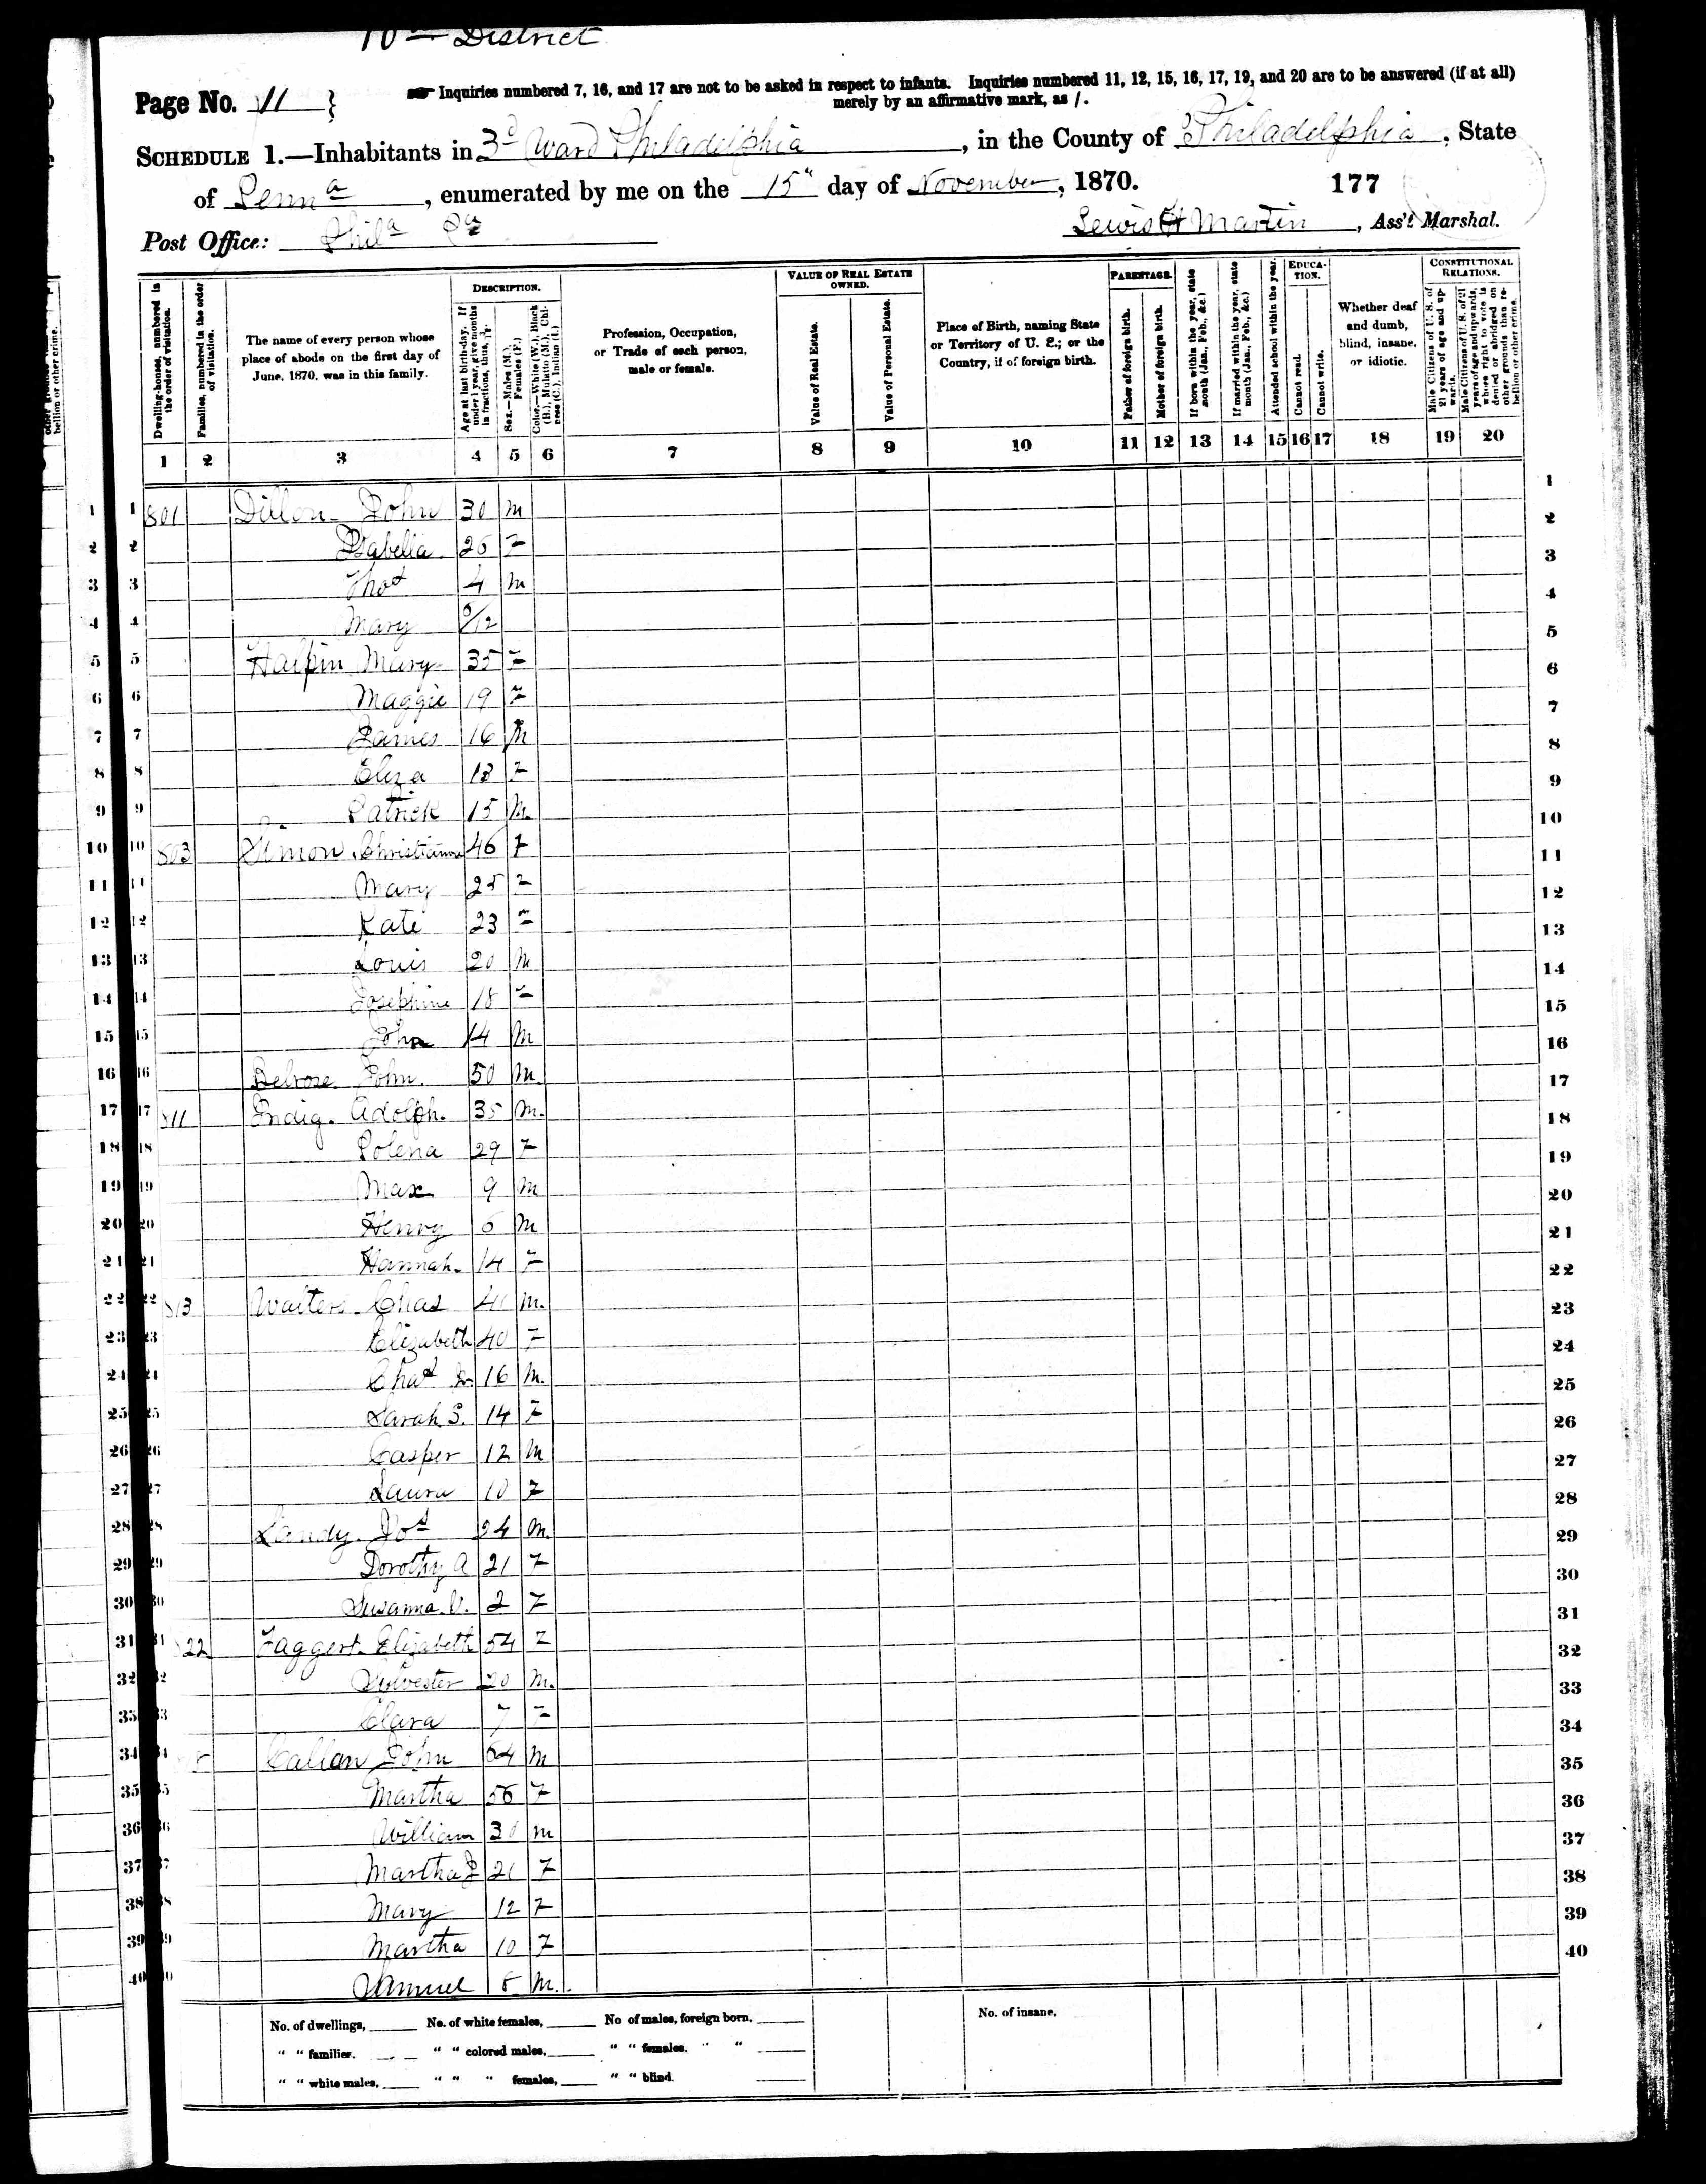 10th District
Page No. 11
Inquiries numbered 7, 16, and 17 are not to be asked in respect to infants. Inquiries numbered 11, 12, 15, 16, 17, 19, and 20 are to be answered (if at all)
merely by an affirmative mark, as /.
SCHEDULE 1.—Inhabitants in 3d Ward Philadelphia, in the County of Philadelphia, State
of Penna, enumerated by me on the 15" day of November, 1870. 177
Post Office: Phila Pa Lewis H Martin, Ass't Marshal.
DESCRIPTION. VALUE OF REAL ESTATE OWNED. PARENTAGE. EDUCATION. CONSTITUTIONAL RELATIONS.
Dwelling-houses, numbered in the order of visitation.
Families, numbered in the order of visitation.
The name of every person whose place of abode on the first day of June, 1870, was in this family.
Age at last birth-day. If under 1 year, give months in fractions, thus,
Sex.—Males (M.), Females (F.)
Color.—White (W.), Black (B.), Mulatto (M.), Chinese (C.), Indian (I.)
Profession, Occupation, or Trade of each person, male or female.
Value of Real Estate.
Value of Personal Estate.
Place of Birth, naming State or Territory of U. S.; or the Country, if of foreign birth.
Father of foreign birth.
Mother of foreign birth.
If born within the year, state month (Jan., Feb., &c.)
If married within the year, state month (Jan., Feb., &c.)
Attended school within the year.
Cannot read.
Cannot write.
Whether deaf and dumb, blind, insane, or idiotic.
Male Citizens of U. S. of 21 years of age and upwards.
Male Citizens of U. S. of 21 years of age and upwards, whose right to vote is denied or abridged on other grounds than rebellion or other crime.
1 2 3 4 5 6 7 8 9 10 11 12 13 14 15 16 17 18 19 20
1 801 Dillon John 30 M
2 Isabella 25 F
3 Thos 4 M
4 Mary /12
5 Halpin Mary 35 F
6 Maggie 19 F
7 James 16 M
8 Eliza 13 F
9 Patrick 15 M.
10 803 Simon Christianna 46 F
11 Mary 25 F
12 Kate 23 F
13 Louis 20 M
14 Josephine 18 F
15 John 14 M
16 Belrose John. 50 M.
17 811 Indig. Adolph. 35 M.
18 Polena 29 F
19 Max 9 M
20 Henry 6 M
21 Hannah. 14 F
22 813 Walters Chas 41 M.
23 Elizabeth 40 F
24 Chas Jr. 16 M.
25 Sarah S. 14 F
26 Casper 12 M
27 Laura 10 F
28 Landy. Jos 24 M.
29 Dorothy A 21 F
30 Susanna. V. 2 F
31 822 Faggert Elizabeth 54 F
32 Sylvester 20 M.
33 Clara 7 F
34 Callan John 64 M
35 Martha 56 F
36 William 30 M
37 Martha J 21 F
38 Mary 12 F
39 Martha 10 F
40 Samuel 8 M.
No. of dwellings, No. of white females, No of males, foreign born, No. of insane,
" " families. " " colored males, " " females. " "
" " white males, " " " females, " " blind.